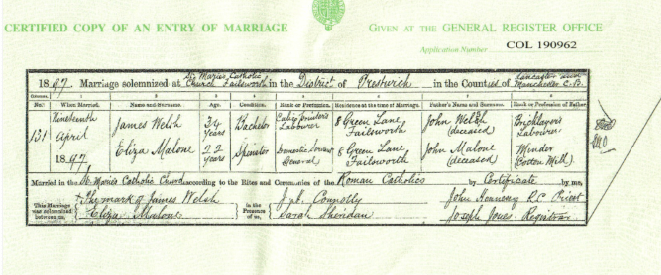 CERTIFIED COPY OF AN ENTRY OF MARRIAGE
GIVEN AT THE GENERAL REGISTER OFFICE
Application Number COL 190962
1897. Marriage solemnized at St Maries Catholic Church Failsworth in the District of Prestwich in the Counties of Lancaster and Manchester C.B.
Columns. 1 2 3 4 5 6 7 8
No. When Married. Name and Surname. Age. Condition. Rank or Profession. Residence at the time of Marriage. Father's Name and Surname. Rank or Profession of Father.
131 Nineteenth April 1897. James Welsh 34 years Bachelor Calico Printer's Labourer 8 Green Lane, Failsworth John Welsh (deceased) Bricklayer's Labourer
Eliza Malone 22 years Spinster Domestic Servant General 8 Green Lane, Failsworth John Malone (deceased) Minder (Cotton Mill)
Married in the St. Marie's Catholic Church according to the Rites and Ceremonies of the Roman Catholics by Certificate by me,
This Marriage was solemnized between us, X The mark of James Welsh
Eliza Malone
in the Presence of us, Connolly
Sarah Sheridan
John Hennessy R.C. Priest
Joseph Jones Registrar